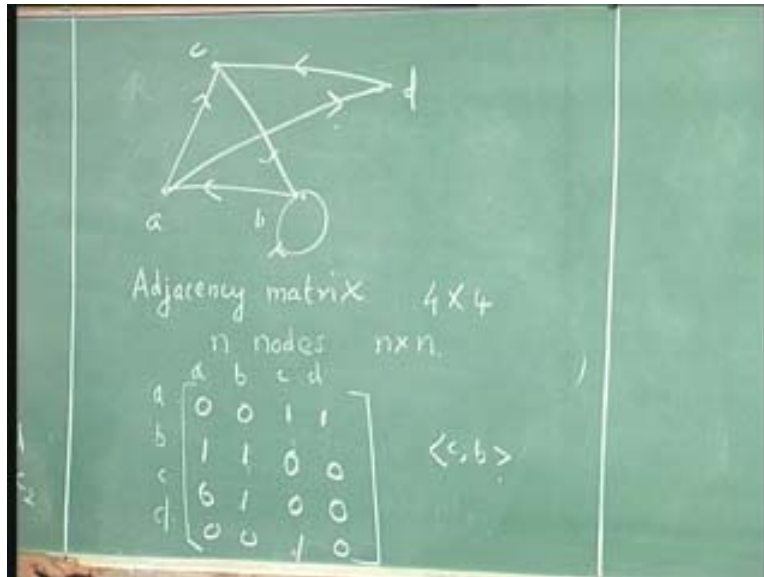 c
d
a
b
Adjacency matrix 4 x 4
n nodes n x n.
a b c d
a 0 0 1 1
b 1 1 0 0
c 0 1 0 0 <c, b>
d 0 0 1 0